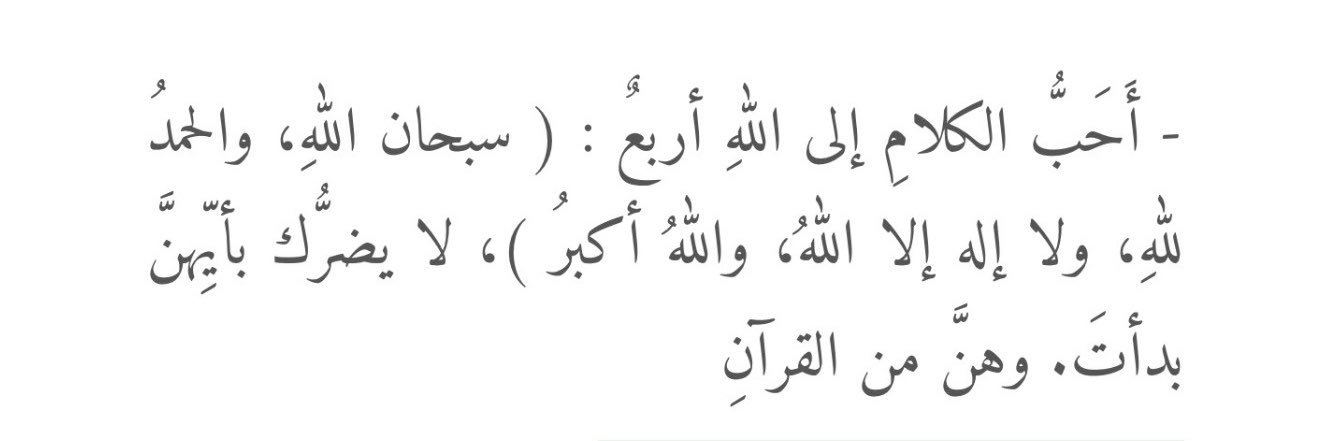 - أَحَبُّ الكلامِ إلى اللهِ أربعٌ : ( سبحان اللهِ، والحمدُ
للهِ، ولا إله إلا اللهُ، واللهُ أكبرُ )، لا يضرُّك بأيِّهنَّ
بدأتَ. وهنَّ من القرآنِ